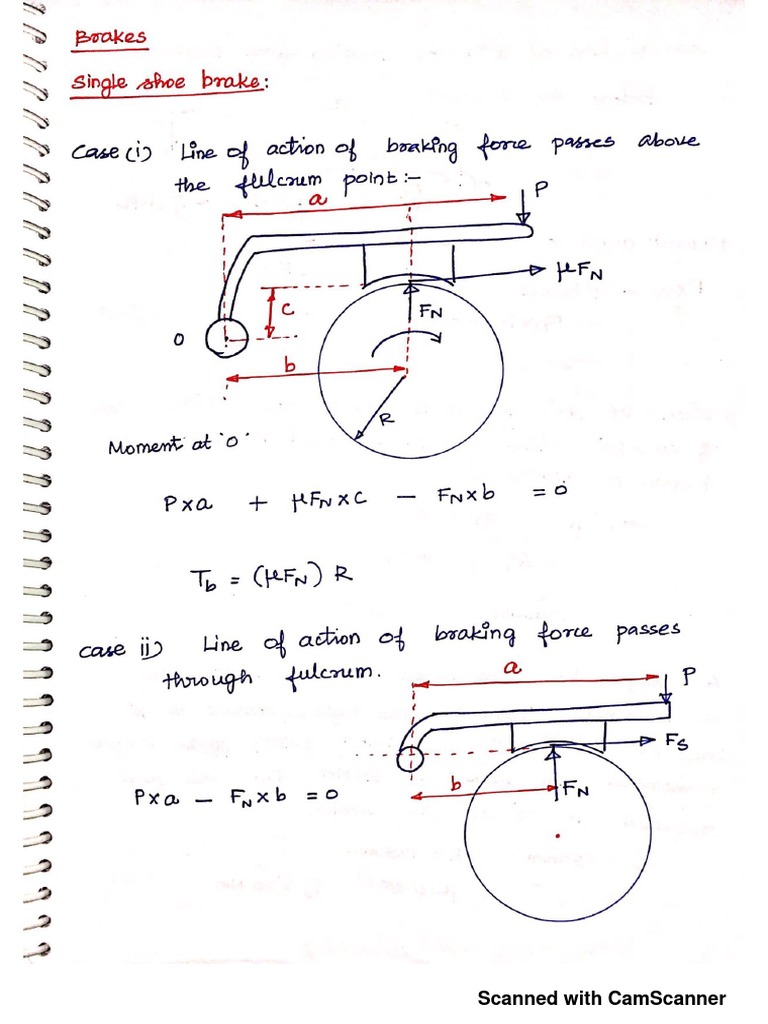 Brakes
Single shoe brake:
Case (i) Line of action of braking force passes above
the fulcrum point:-
a
P
μFN
C
FN
O
b
R
Moment at 'O'
P×a + μFN×c - FN×b = 0
Tb = (μFN) R
Case ii) Line of action of braking force passes
through fulcrum.
a
P
Fs
b
FN
P×a - FN×b = 0
Scanned with CamScanner